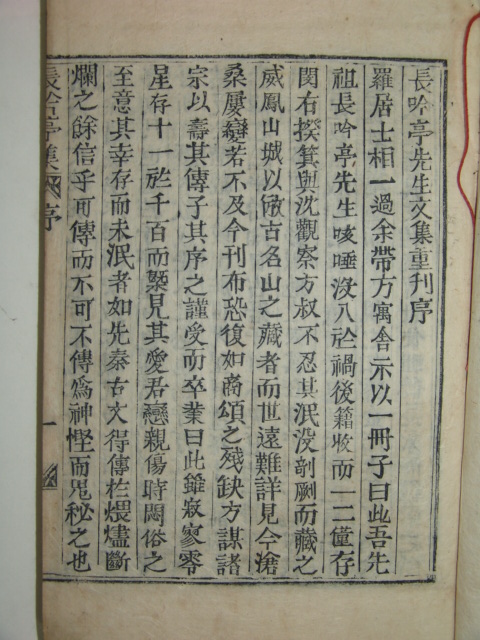 長吟亭先生文集重刊序
羅居士相一過余帶方寓舍示以一冊子曰此吾先
祖長吟亭先生咳唾沒入於禍後籍收而一二僅存
閔右揆箕與沈觀察方叔不忍其泯没剞劂而藏之
威鳳山城以倣古名山之藏者而世遠難詳見今滄
桑屢變若不及今刊布恐復如商頌之殘缺方謀諸
宗以壽其傳子其序之謹受而卒業曰此雖寂寥零
星存十一於千百而槩見其愛君戀親傷時悶俗之
至意其幸存而未泯者如先秦古文得傳於煨燼斷
爛之餘信乎可傳而不可不傳爲神慳而鬼秘之也
長吟亭集 序 一